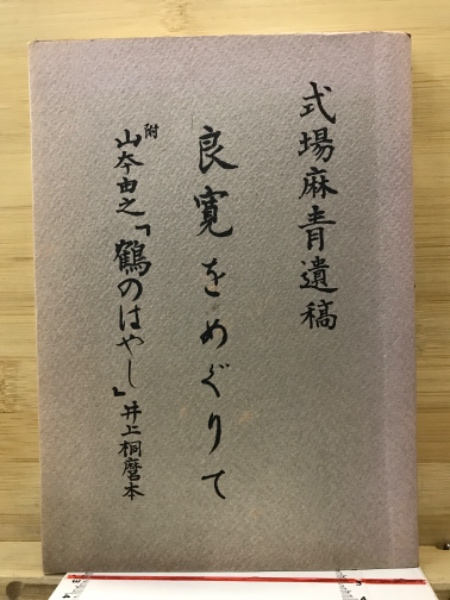 式場麻青遺稿
良寛をめぐりて
附
山本由之「鶴のはやし」井上桐麿本